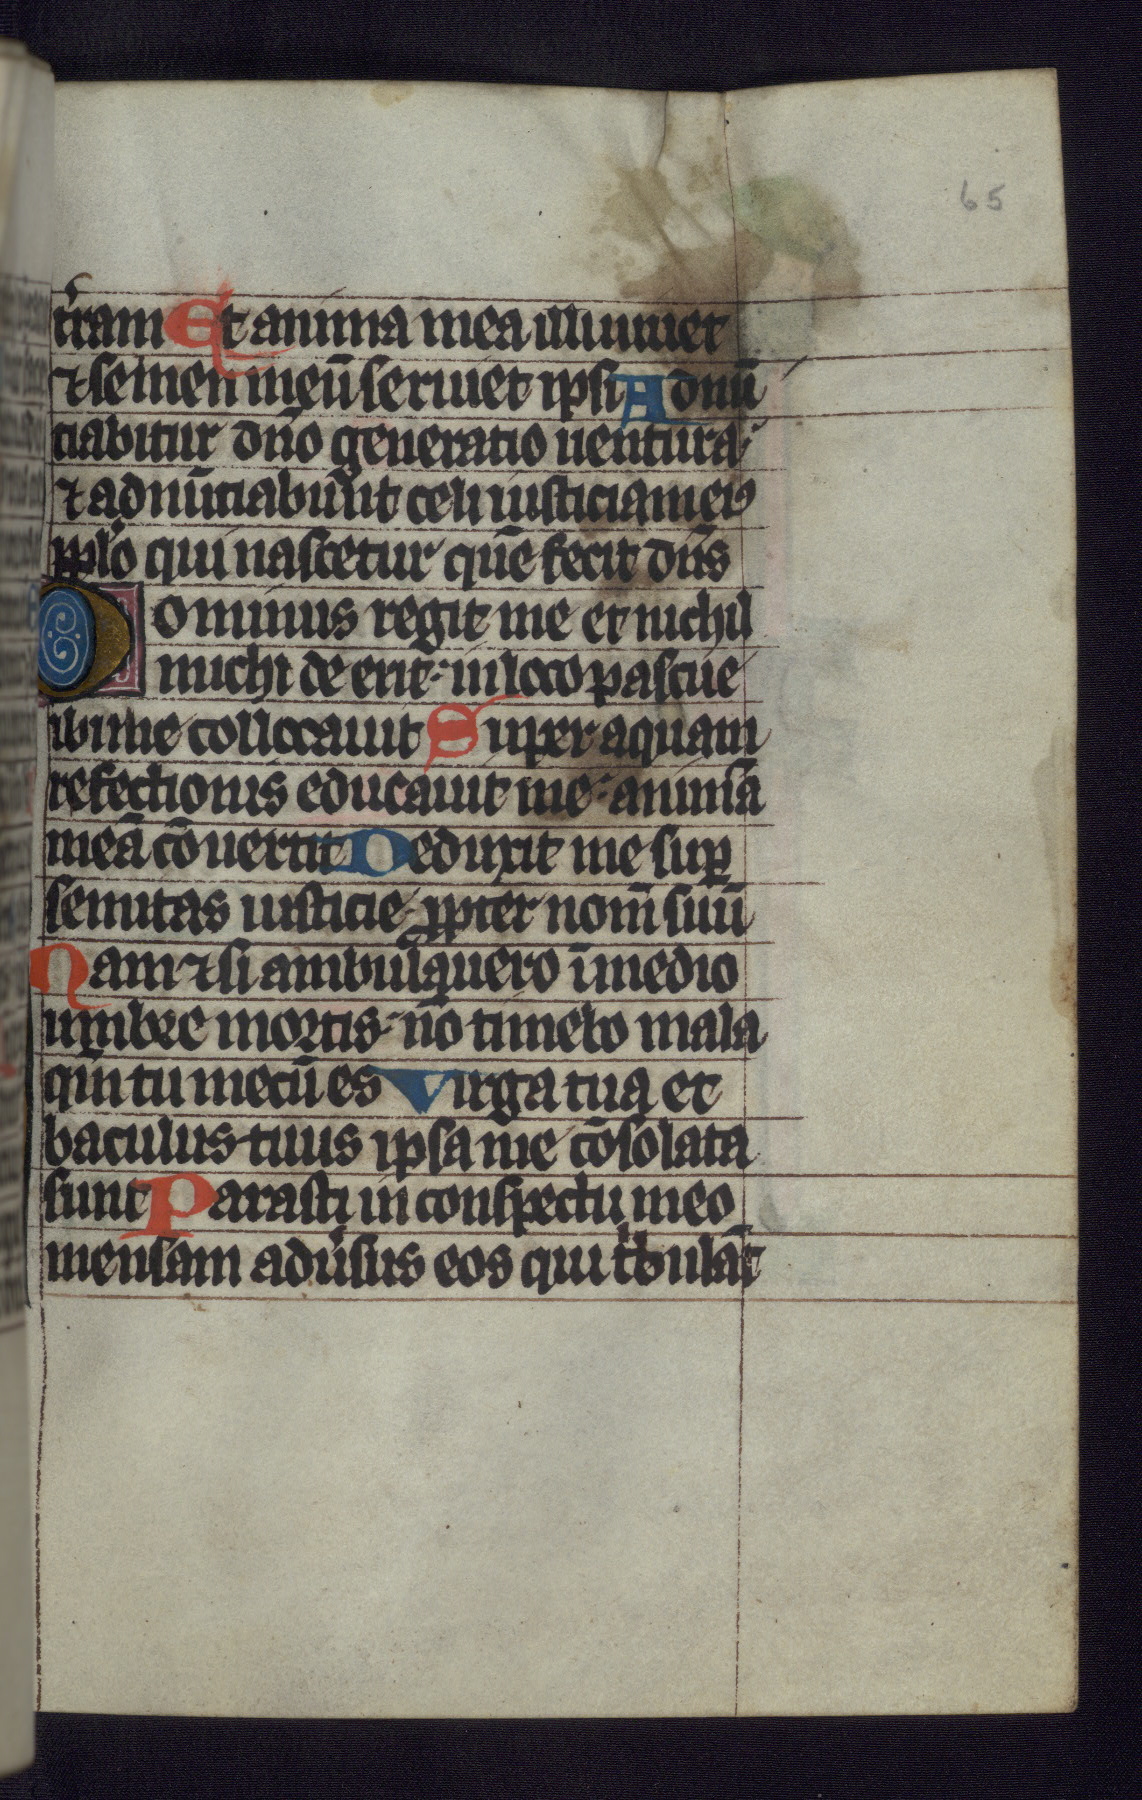 65
t͛ram Et anima mea illi uiuet
⁊ semen meū seruiet ipsi Adnū
ciabitur dn̄o generatio uentura
⁊ adnūciabūt celi iusticiam eiꝰ
pplo qui nascetur quē fecit dn̄s
Dominus regit me et nichil
michi de erit· in loco pascue
ibi me collocauit Super aquam
refectionis educauit me· animā
meā cōuertit Deduxit me suꝑ
semitas iusticie ꝓpter nom̄ suū
Nam ⁊ si ambulauero ī medio
umbre mortis· nō timebo mala
qm̄ tu mecū es Virga tua et
baculus tuus ipsa me cōsolata
sunt Parasti in conspectu meo
mensam adūsus eos qui tͥbulāt